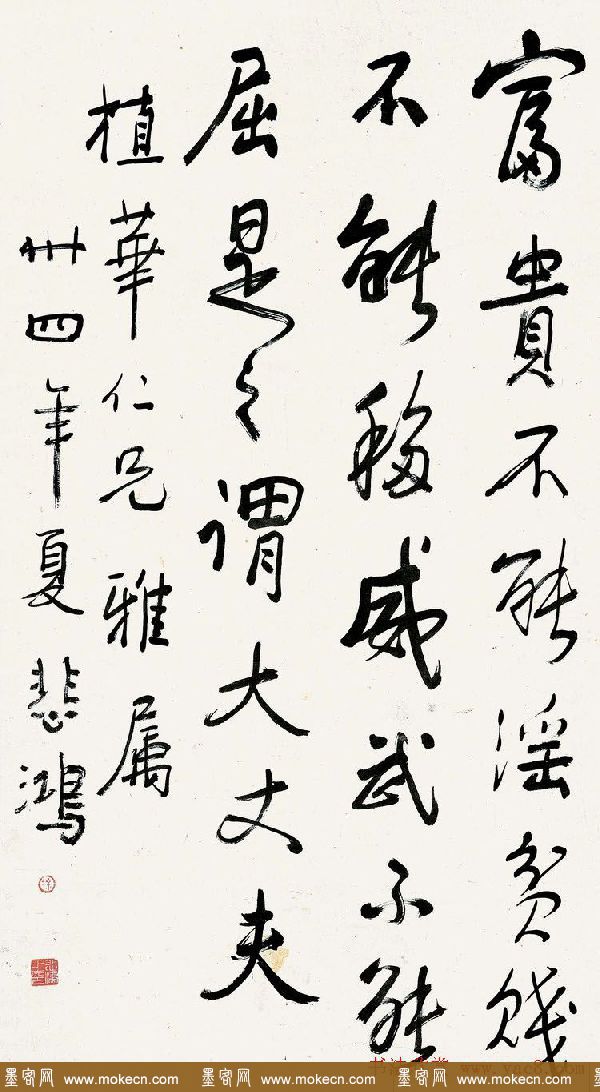 富貴不能淫貧賤
不能移威武不能
屈是之謂大丈夫
植華仁兄雅属
卅四年夏悲鴻
墨客网 www.mokecn.com 墨客网 www.mokecn.com 墨客网 www.mokecn.com